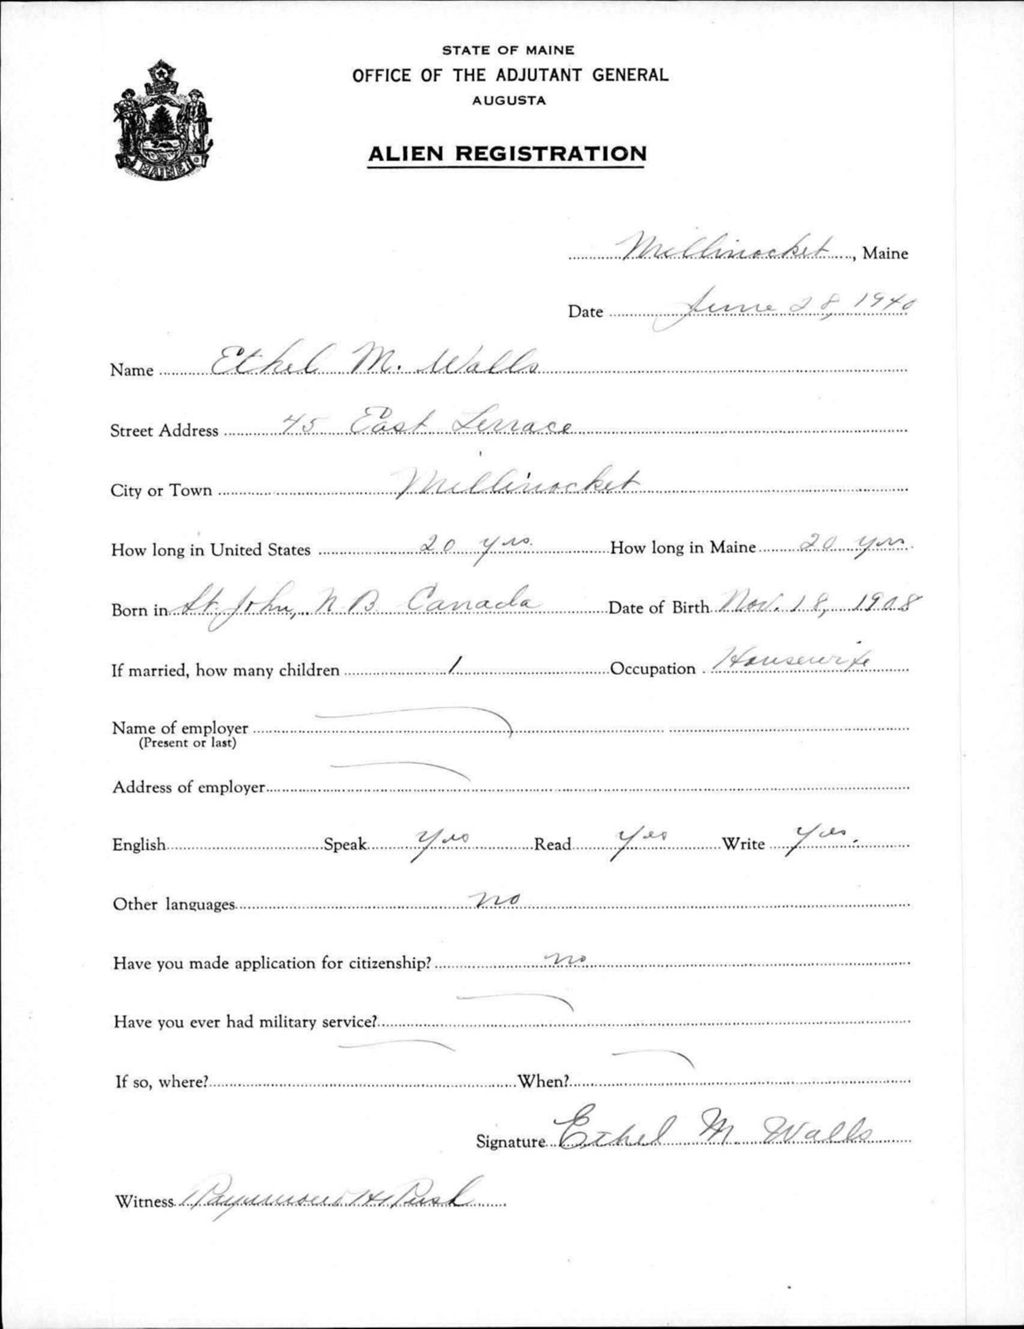 STATE OF MAINE
OFFICE OF THE ADJUTANT GENERAL
AUGUSTA
ALIEN REGISTRATION
MAINE
Millinocket, Maine
Date June 28, 1940
Name Ethel M. Walls
Street Address 45 East Terrace
City or Town Millinocket
How long in United States 20 yrs. How long in Maine 20 yrs.
Born in St. John, N B Canada Date of Birth Nov. 18, 1908
If married, how many children 1 Occupation Housewife
Name of employer
(Present or last)
Address of employer
English Speak yes Read yes Write yes.
Other languages no
Have you made application for citizenship? no
Have you ever had military service?
If so, where? When?
Signature Ethel M. Walls
Witness Raymond H.